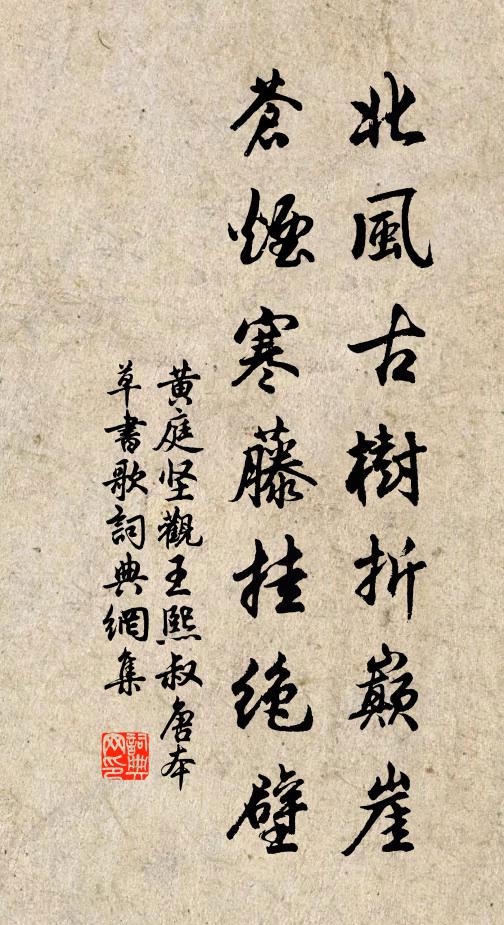 北風古樹折巔崖
蒼煙寒藤挂绝壁
黄庭坚觀王熙叔唐本
草書歌詞典網集
詞典网印